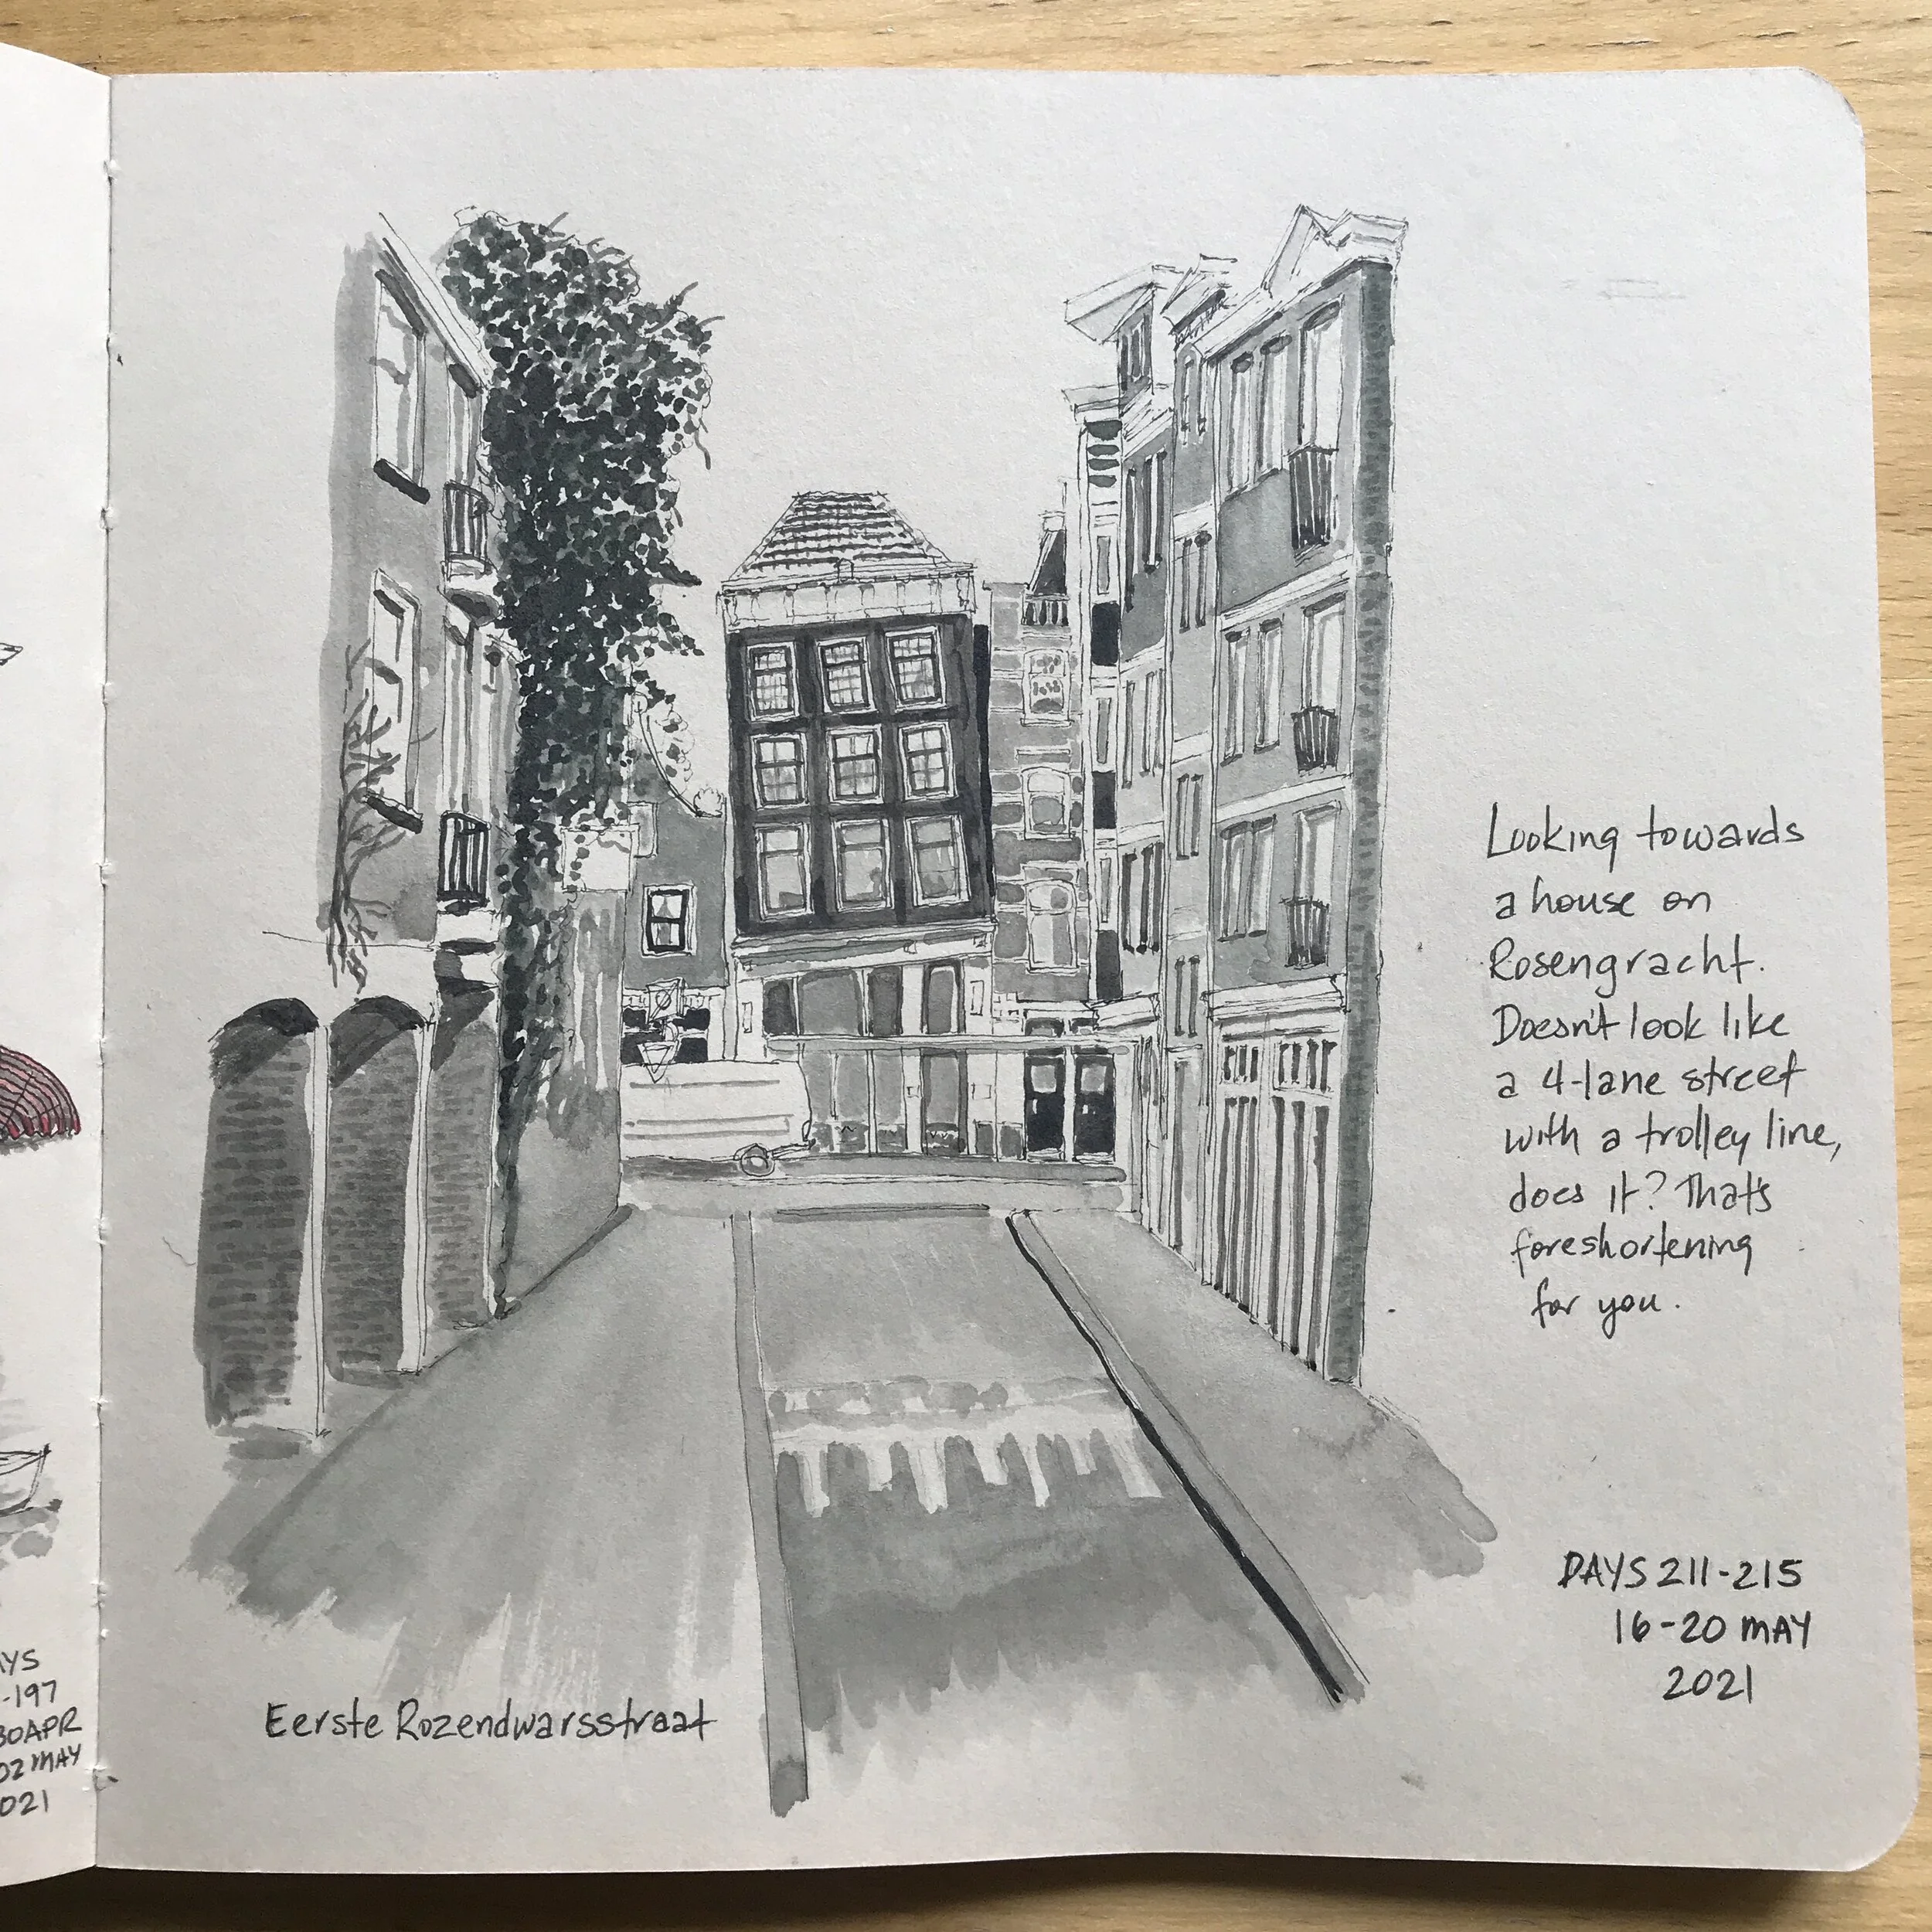 Looking towards
a house on
Rosengracht.
Doesn't look like
a 4-lane street
with a trolley line,
does it? That's
foreshortening
for you.
DAYS 211-215
16-20 MAY
2021
Eerste Rozendwarsstraat
AYS
-197
30APR
02 MAY
021